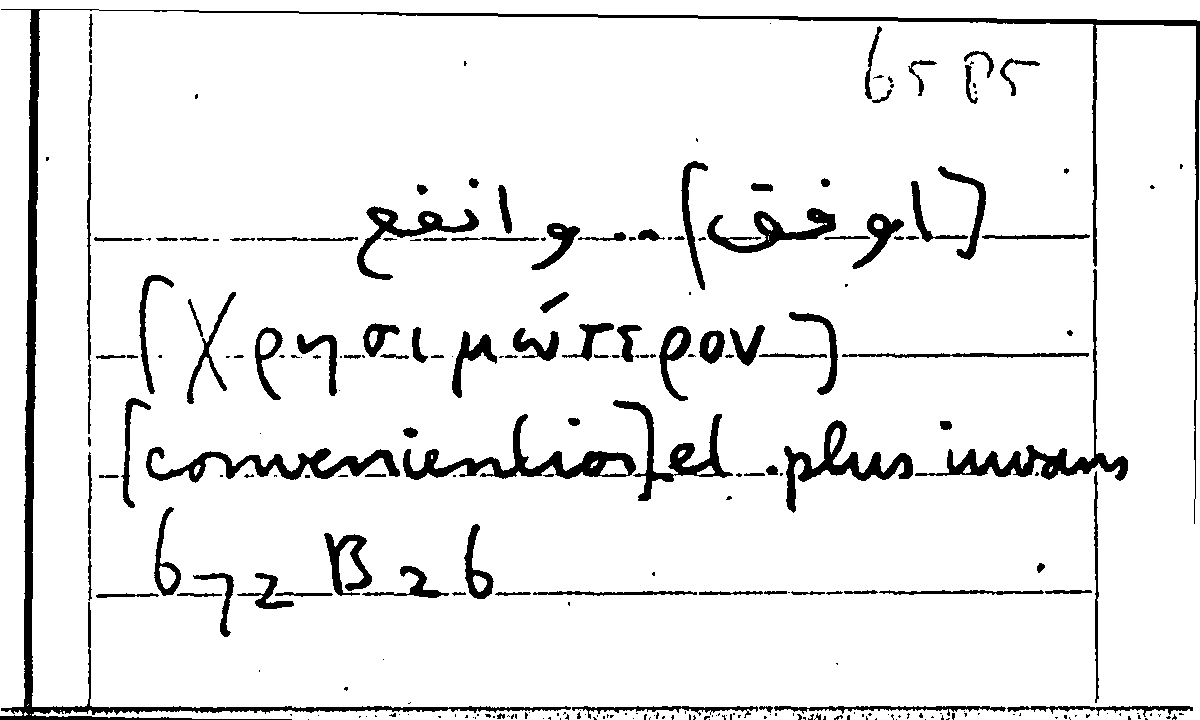 [اوفق] .. وانفع
[χρησιμώτερον]
[convenientior] et plus iuvans
672 B 26